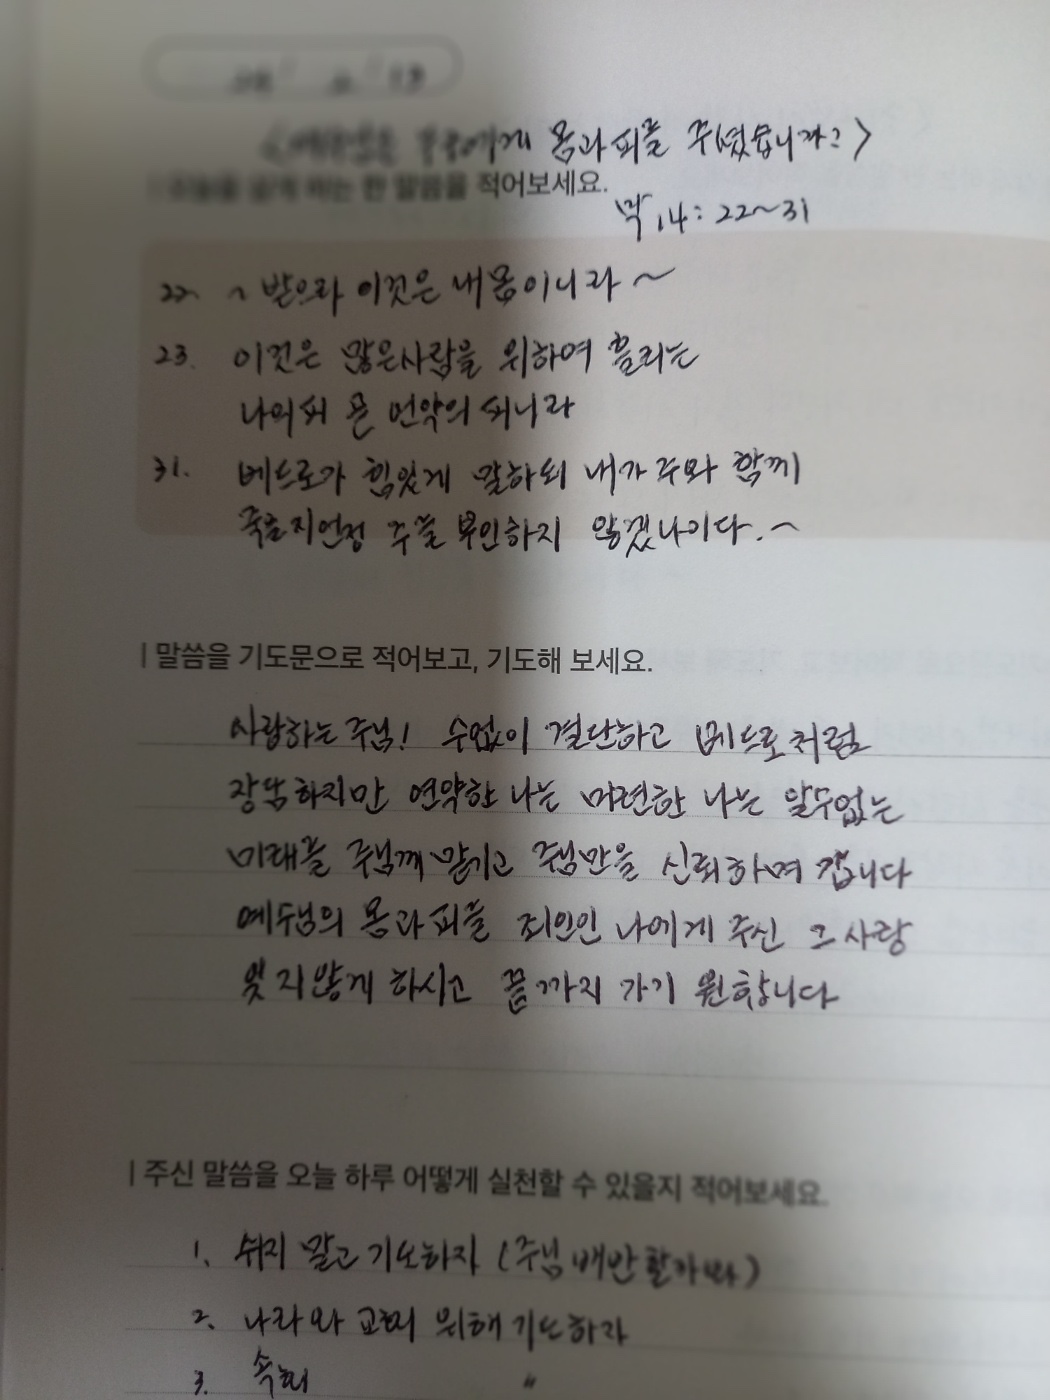 19
에게 몸과 피를 주셨습니까?>
오늘을 살게 하는 한 말씀을 적어보세요.
막 14: 22~31
22. ~ 받으라 이것은 내 몸이니라 ~
23. 이것은 많은사람을 위하여 흘리는
나의피 곧 언약의 피니라
31. 베드로가 힘있게 말하되 내가 주와 함께
죽을지언정 주를 부인하지 않겠나이다. ~
| 말씀을 기도문으로 적어보고, 기도해 보세요.
사랑하는 주님! 수없이 결단하고 베드로처럼
장담하지만 연약한 나는 미련한 나는 알수없는
미래를 주님께 맡기고 주님만을 신뢰하며 갑니다
예수님의 몸과 피를 죄인인 나에게 주신 그 사랑
잊지않게 하시고 끝까지 가기 원합니다
| 주신 말씀을 오늘 하루 어떻게 실천할 수 있을지 적어보세요.
1. 쉬지 말고 기도하자 (주님 배반할까봐)
2. 나라와 교회 위해 기도하자
3. 속회 〃